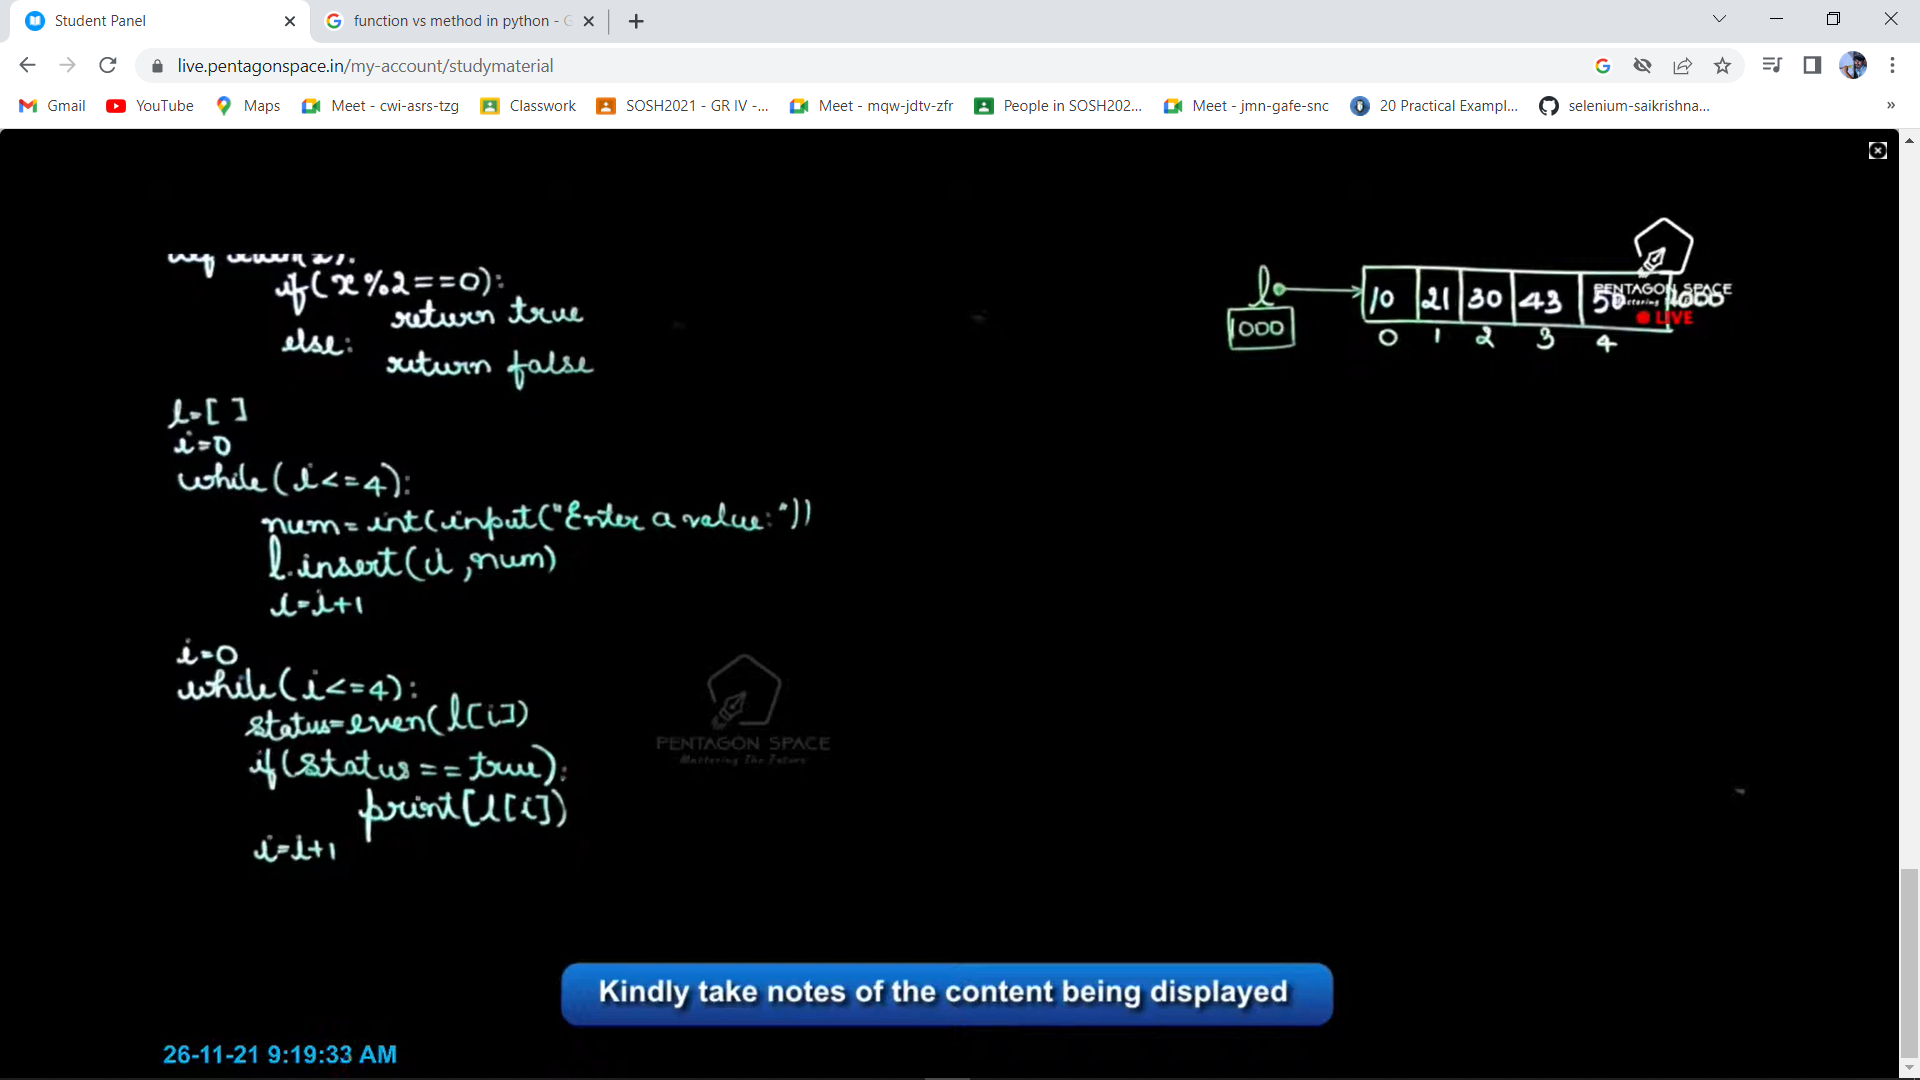 Student Panel
function vs method in python - G
live.pentagonspace.in/my-account/studymaterial
Gmail
YouTube
Maps
Meet - cwi-asrs-tzg
Classwork
SOSH2021 - GR IV -...
Meet - mqw-jdtv-zfr
People in SOSH202...
Meet - jmn-gafe-snc
20 Practical Exampl...
selenium-saikrishna...
»
if(x%2==0):
return true
else:
return false
l=[ ]
i=0
while(i<=4):
num=int(input("Enter a value:"))
l.insert(i,num)
i=i+1
i=0
while(i<=4):
status=even(l[i])
if(status==true):
print(l[i])
i=i+1
l
1000
10 21 30 43 50 1000
0 1 2 3 4
PENTAGON SPACE
LIVE
PENTAGON SPACE
Mastering The Future
Kindly take notes of the content being displayed
26-11-21 9:19:33 AM